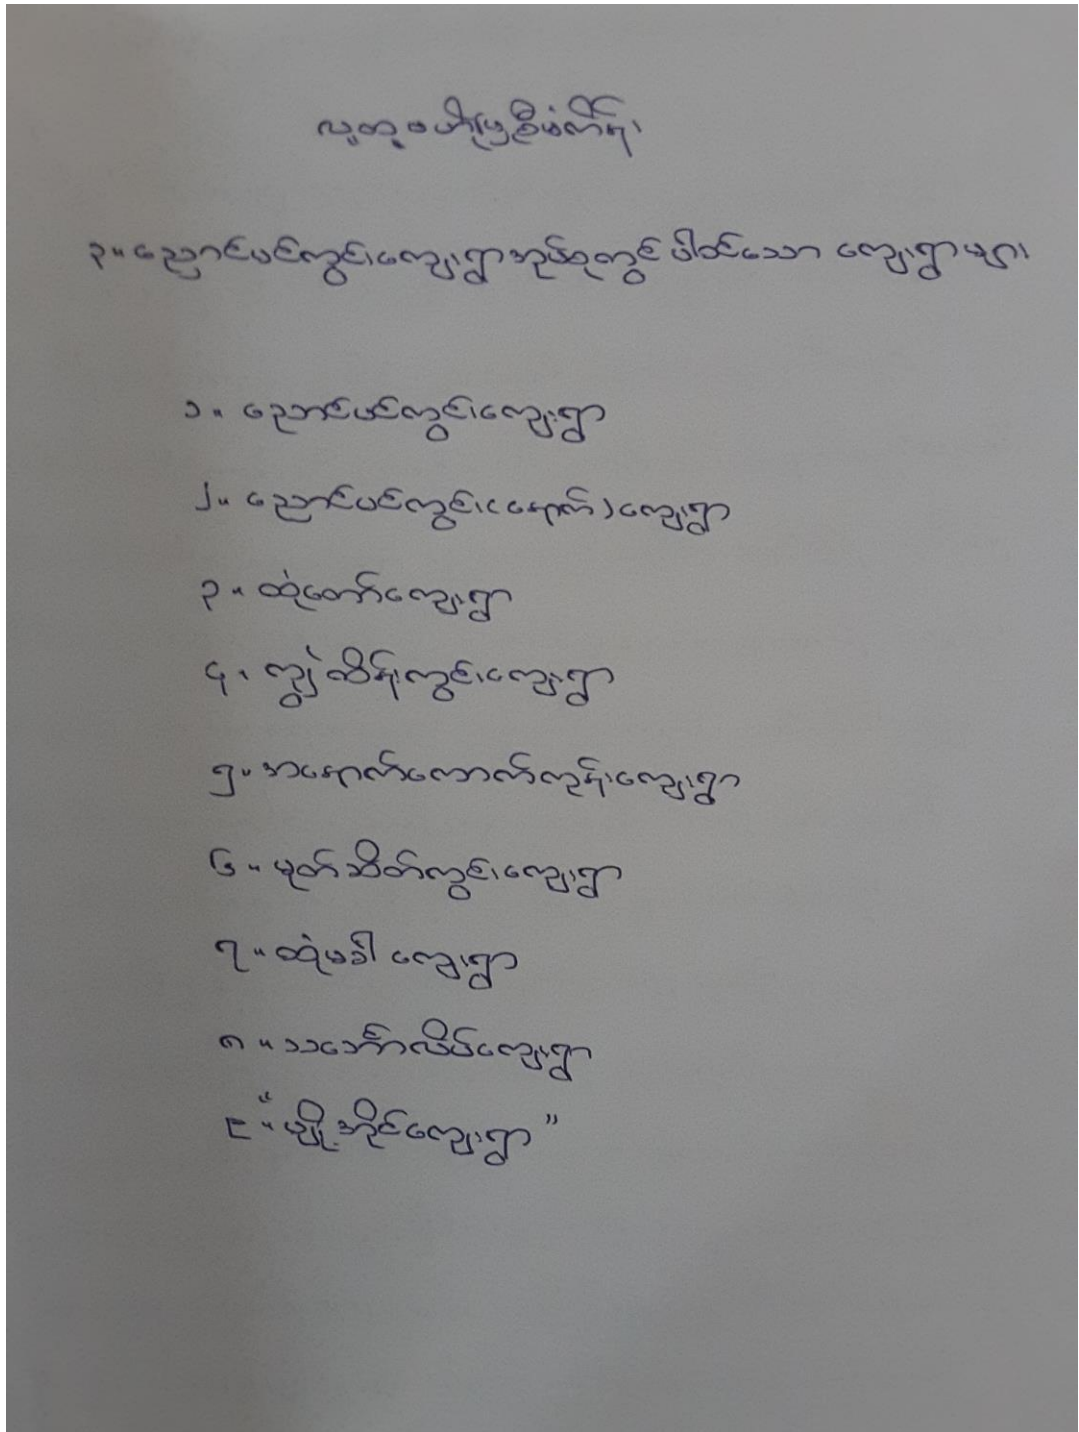 လူထုဗဟိုပြုစီမံကိန်း
၃။ ညောင်ပင်ကွင်းကျေးရွာအုပ်စုတွင် ပါဝင်သော ကျေးရွာများ
၁။ ညောင်ပင်ကွင်းကျေးရွာ
၂။ ညောင်ပင်ကွင်း(နောက်)ကျေးရွာ
၃။ ထုံတော်ကျေးရွာ
၄။ ကျွဲထိန်းကွင်းကျေးရွာ
၅။ အနောက်ကောက်ကုန်းကျေးရွာ
၆။ မုတ်ဆိတ်ကွင်းကျေးရွာ
၇။ ထုံမခါ ကျေးရွာ
၈။ သင်္ဘောလိပ်ကျေးရွာ
၉။ "မျှို့အိုင်ကျေးရွာ"